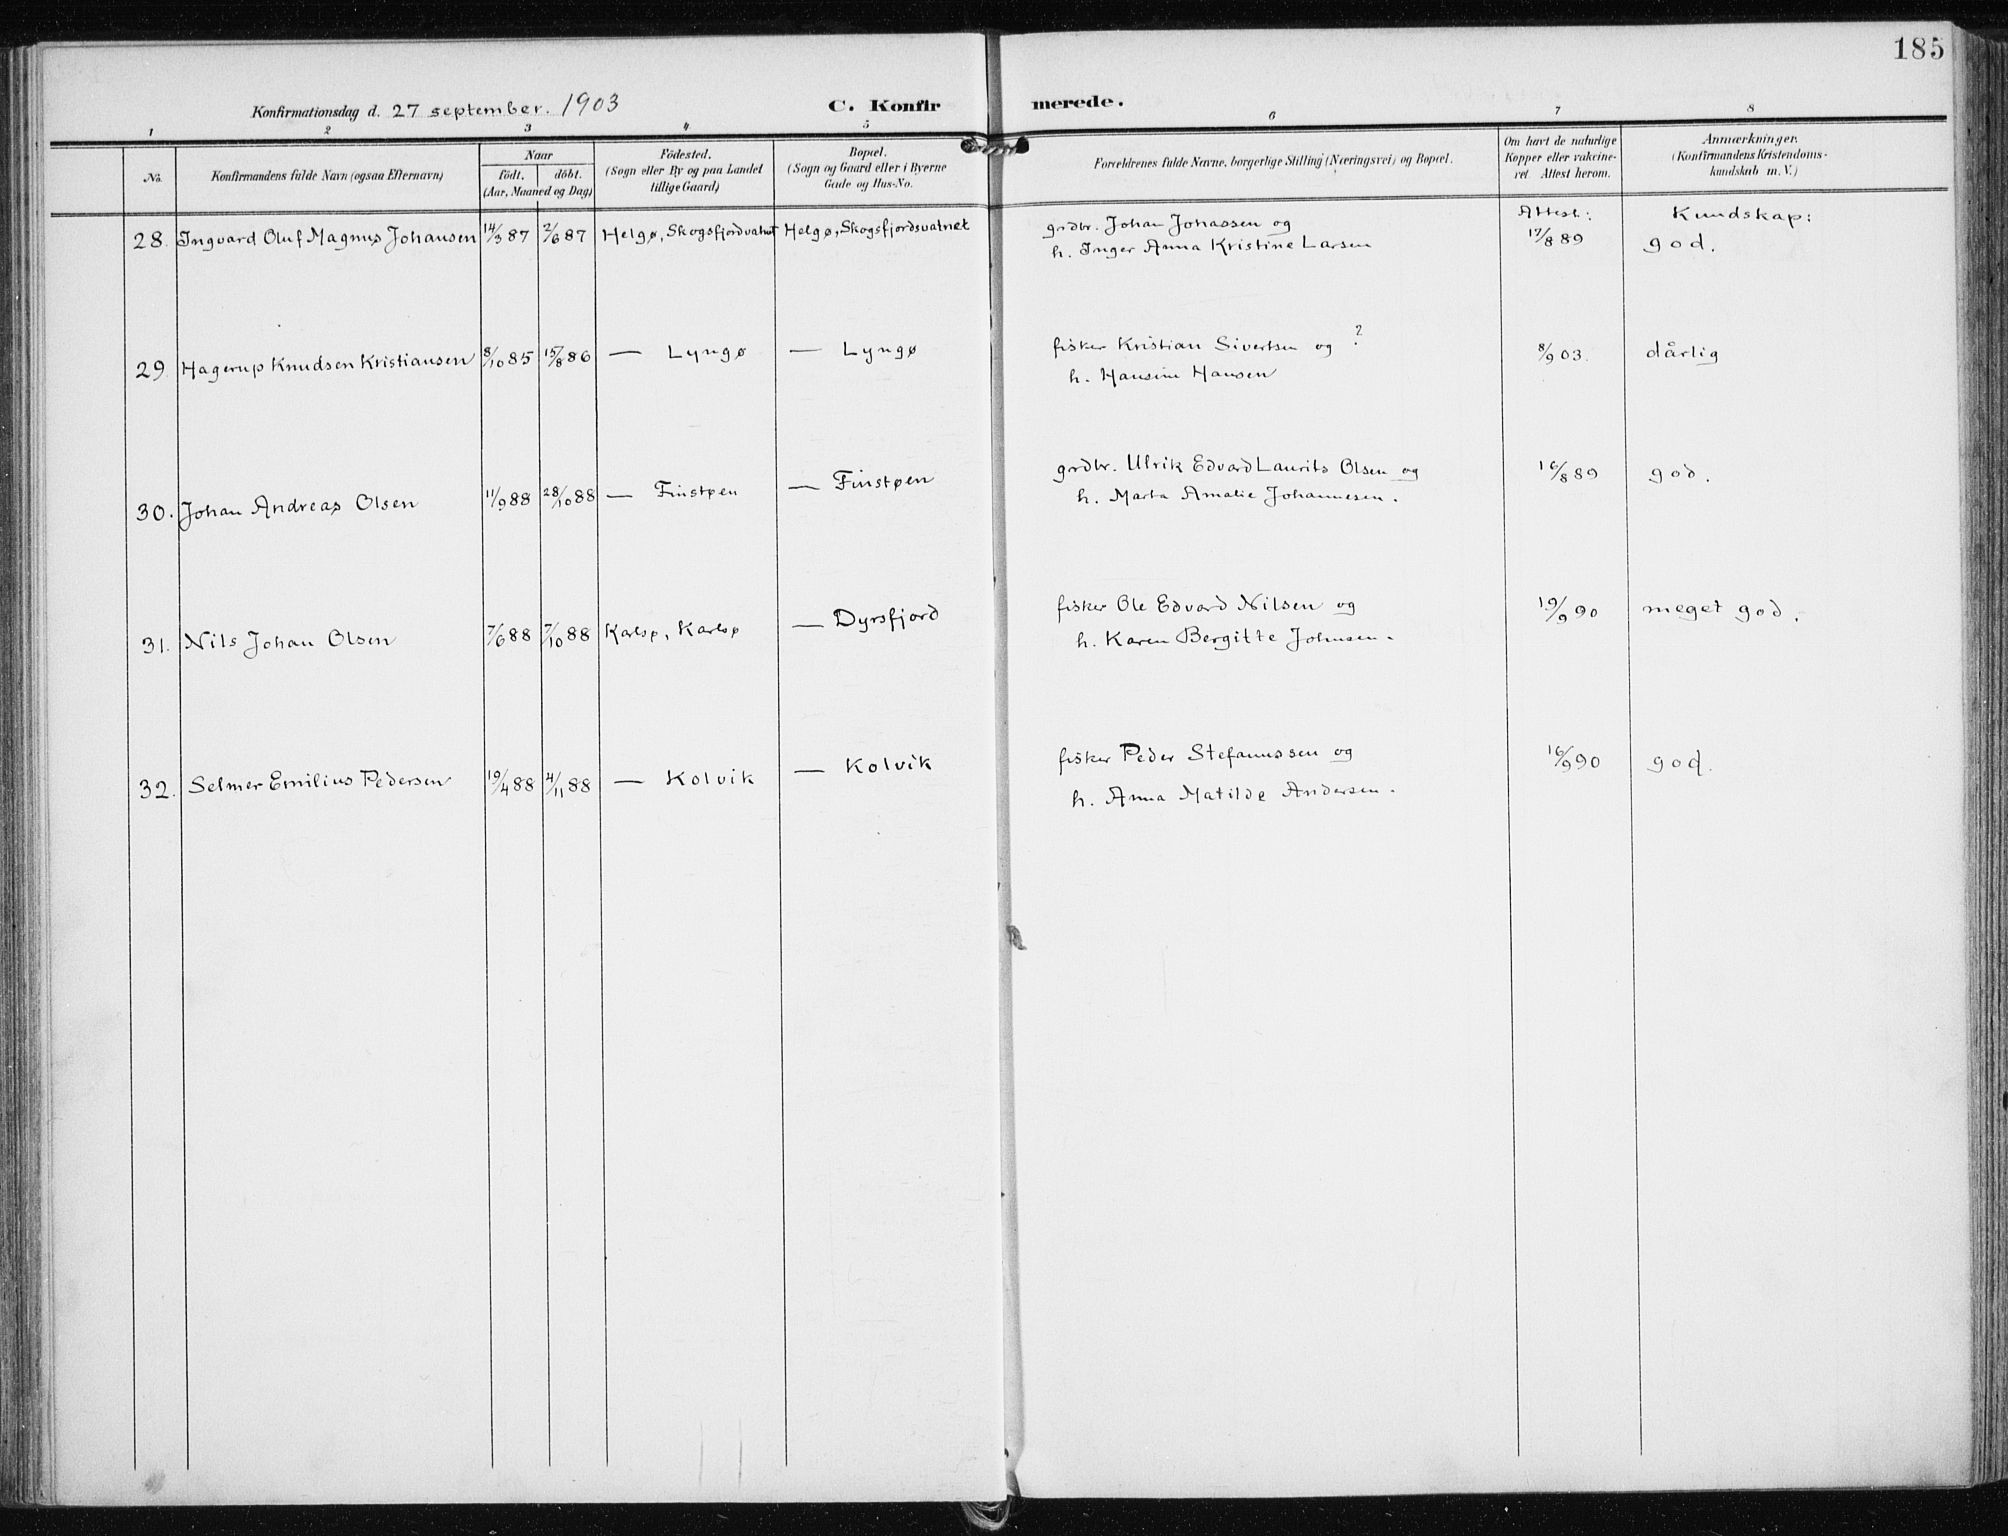 185
Konfirmationsdag d. 27 september. 1903 C. Konfirmerede.
1 2 3 4 5 6 7 8
No.
Konfirmandens fulde Navn (ogsaa Efternavn)
Naar
födt. döbt.
(Aar, Maaned og Dag)
Födested.
(Sogn eller By og paa Landet
tillige Gaard)
Bopæl.
(Sogn og Gaard eller i Byerne
Gade og Hus-No.
Forældrenes fulde Navne, borgerlige Stilling (Næringsvei) og Bopæl.
Om havt de naturlige
Kopper eller vakcine-
ret Attest herom.
Anmærkninger.
(Konfirmandens Kristendoms-
kundskab m. V.)
Attest: Kundskap:
28. Ingvard Oluf Magnus Johansen 14/3 87 2/6 87 Helgø, Skogsfjordvatnet Helgø, Skogsfjordsvatnet grdbr. Johan Johassen og 17/8 89 god.
h. Inger Anna Kristine Larsen
29. Hagerup Knudsen Kristiansen 8/10 85 15/8 86 — Lyngø — Lyngø fisker Kristian Sivertsen og ? 8/9 03. dårlig
h. Hansine Hansen
30. Johan Andreas Olsen 11/9 88 28/10 88 — Finstøen — Finstøen grdbr. Ulrik Edvard Laurits Olsen og 16/8 89 god.
h. Marta Amalie Johannesen.
31. Nils Johan Olsen 7/6 88 7/10 88 Karlsø, Karlsø — Dyrsfjord fisker Ole Edvard Nilsen og 19/9 90 meget god.
h. Karen Bergitte Johnsen.
32. Selmer Emilius Pedersen 19/4 88 4/11 88 — Kolvik — Kolvik fisker Peder Stefanussen og 16/9 90 god.
h. Anna Matilde Andersen.